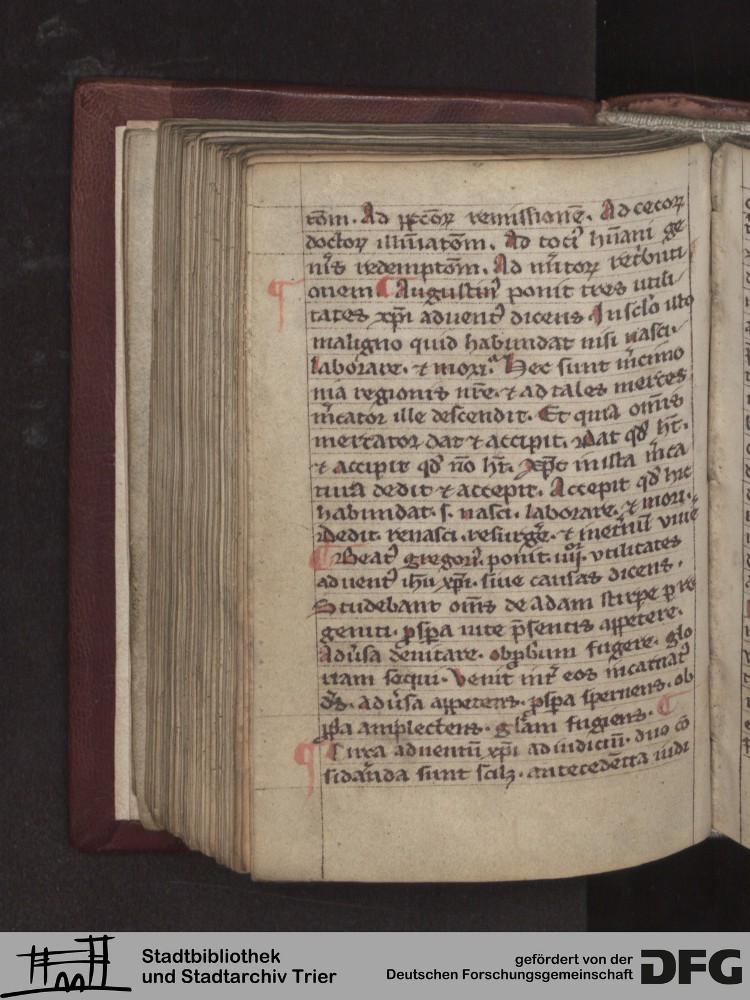 tōm. Ad pctōꝝ remissionē. Ad cecoꝝ
doctoꝝ illūīatōm. Ad toci᷒ hūani ge
nīs redemptōm. Ad mītoꝝ retributi
onem Augustin᷒ ponit tres utili
tates xp̄i aduent᷒ dicens. In sclō isto
maligno quid habundat nisi nasci.
laborare. ⁊ mori. Hec sunt m̄cimo
nia regionis nr̄e. ⁊ ad tales merces
m̄cator ille descendit. Et quia om̄is
mercator dat ⁊ accipit. Dat qd̄ ht̄.
⁊ accipit qd̄ nō ht̄. Xp̄c in ista m̄ca
tura dedit ⁊ accepit. Accepit qd̄ hic
habundat. s. nasci. laborare. ⁊ mori.
Dedit. renasci. resurgē. ⁊ inet̄nū viuē
Beat᷒ gregori᷒. ponit. iiij. vtilitates
aduent᷒ ihū xp̄i. siue causas dicens.
Studebant om̄s de adam stirpe pro
geniti. ꝓspa uite p̄sentis appetere.
Adūsa deuitare. obꝓbrium fugere. glo
riam sequi. Venit int̄ eos incarnat᷒
ds̄. adūsa appetens. ꝓspa spernens. ob
ꝓbria amplectens. glām fugiens.
Circa aduentū xp̄i ad iudiciū. duo cō
sidāda sunt scilꝫ. antecedētia iudi
Stadtbibliothek
und Stadtarchiv Trier
gefördert von der
Deutschen Forschungsgemeinschaft
DFG